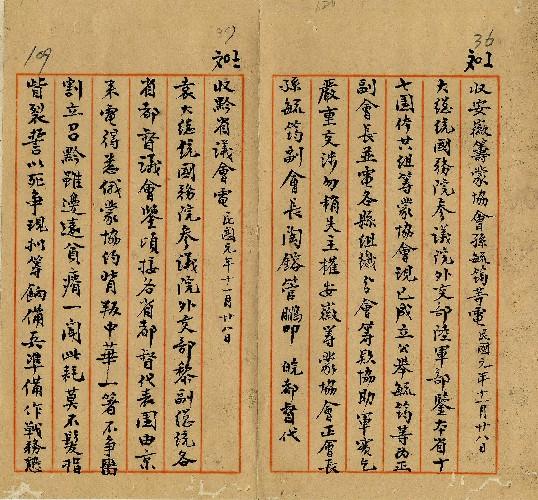 36
収安徽籌蒙協會孫毓筠等電 民國元年十一月廿八日
大總統國務院參議院外交部陸軍部鑒本省十
七團体共組籌蒙協會現已成立公舉毓筠等為正
副會長並電各縣組織分會籌款協助軍實乞
嚴重交涉勿稍失主權安徽籌蒙協會正會長
孫毓筠副會長陶鎔管鵬叩 皖都督代
37
109
収黔省議會電 民國元年十一月廿八日
袁大總統國務院參議院外交部黎副總統各
省都督議會鑒頃接各省都督代表團由京
來電得悉俄蒙協約背叛中華一著不爭
割立召黔雖邊遠貧瘠一聞此耗莫不髮指
眥裂誓以死爭現擬籌餉備兵準備作戰務懇